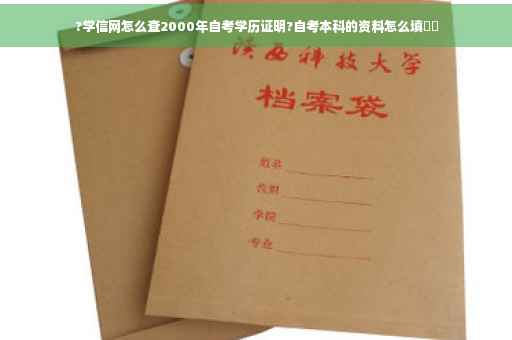 ?学信网怎么查2000年自考学历证明?自考本科的资料怎么填
陕西科技大学
档案袋
学院
专业